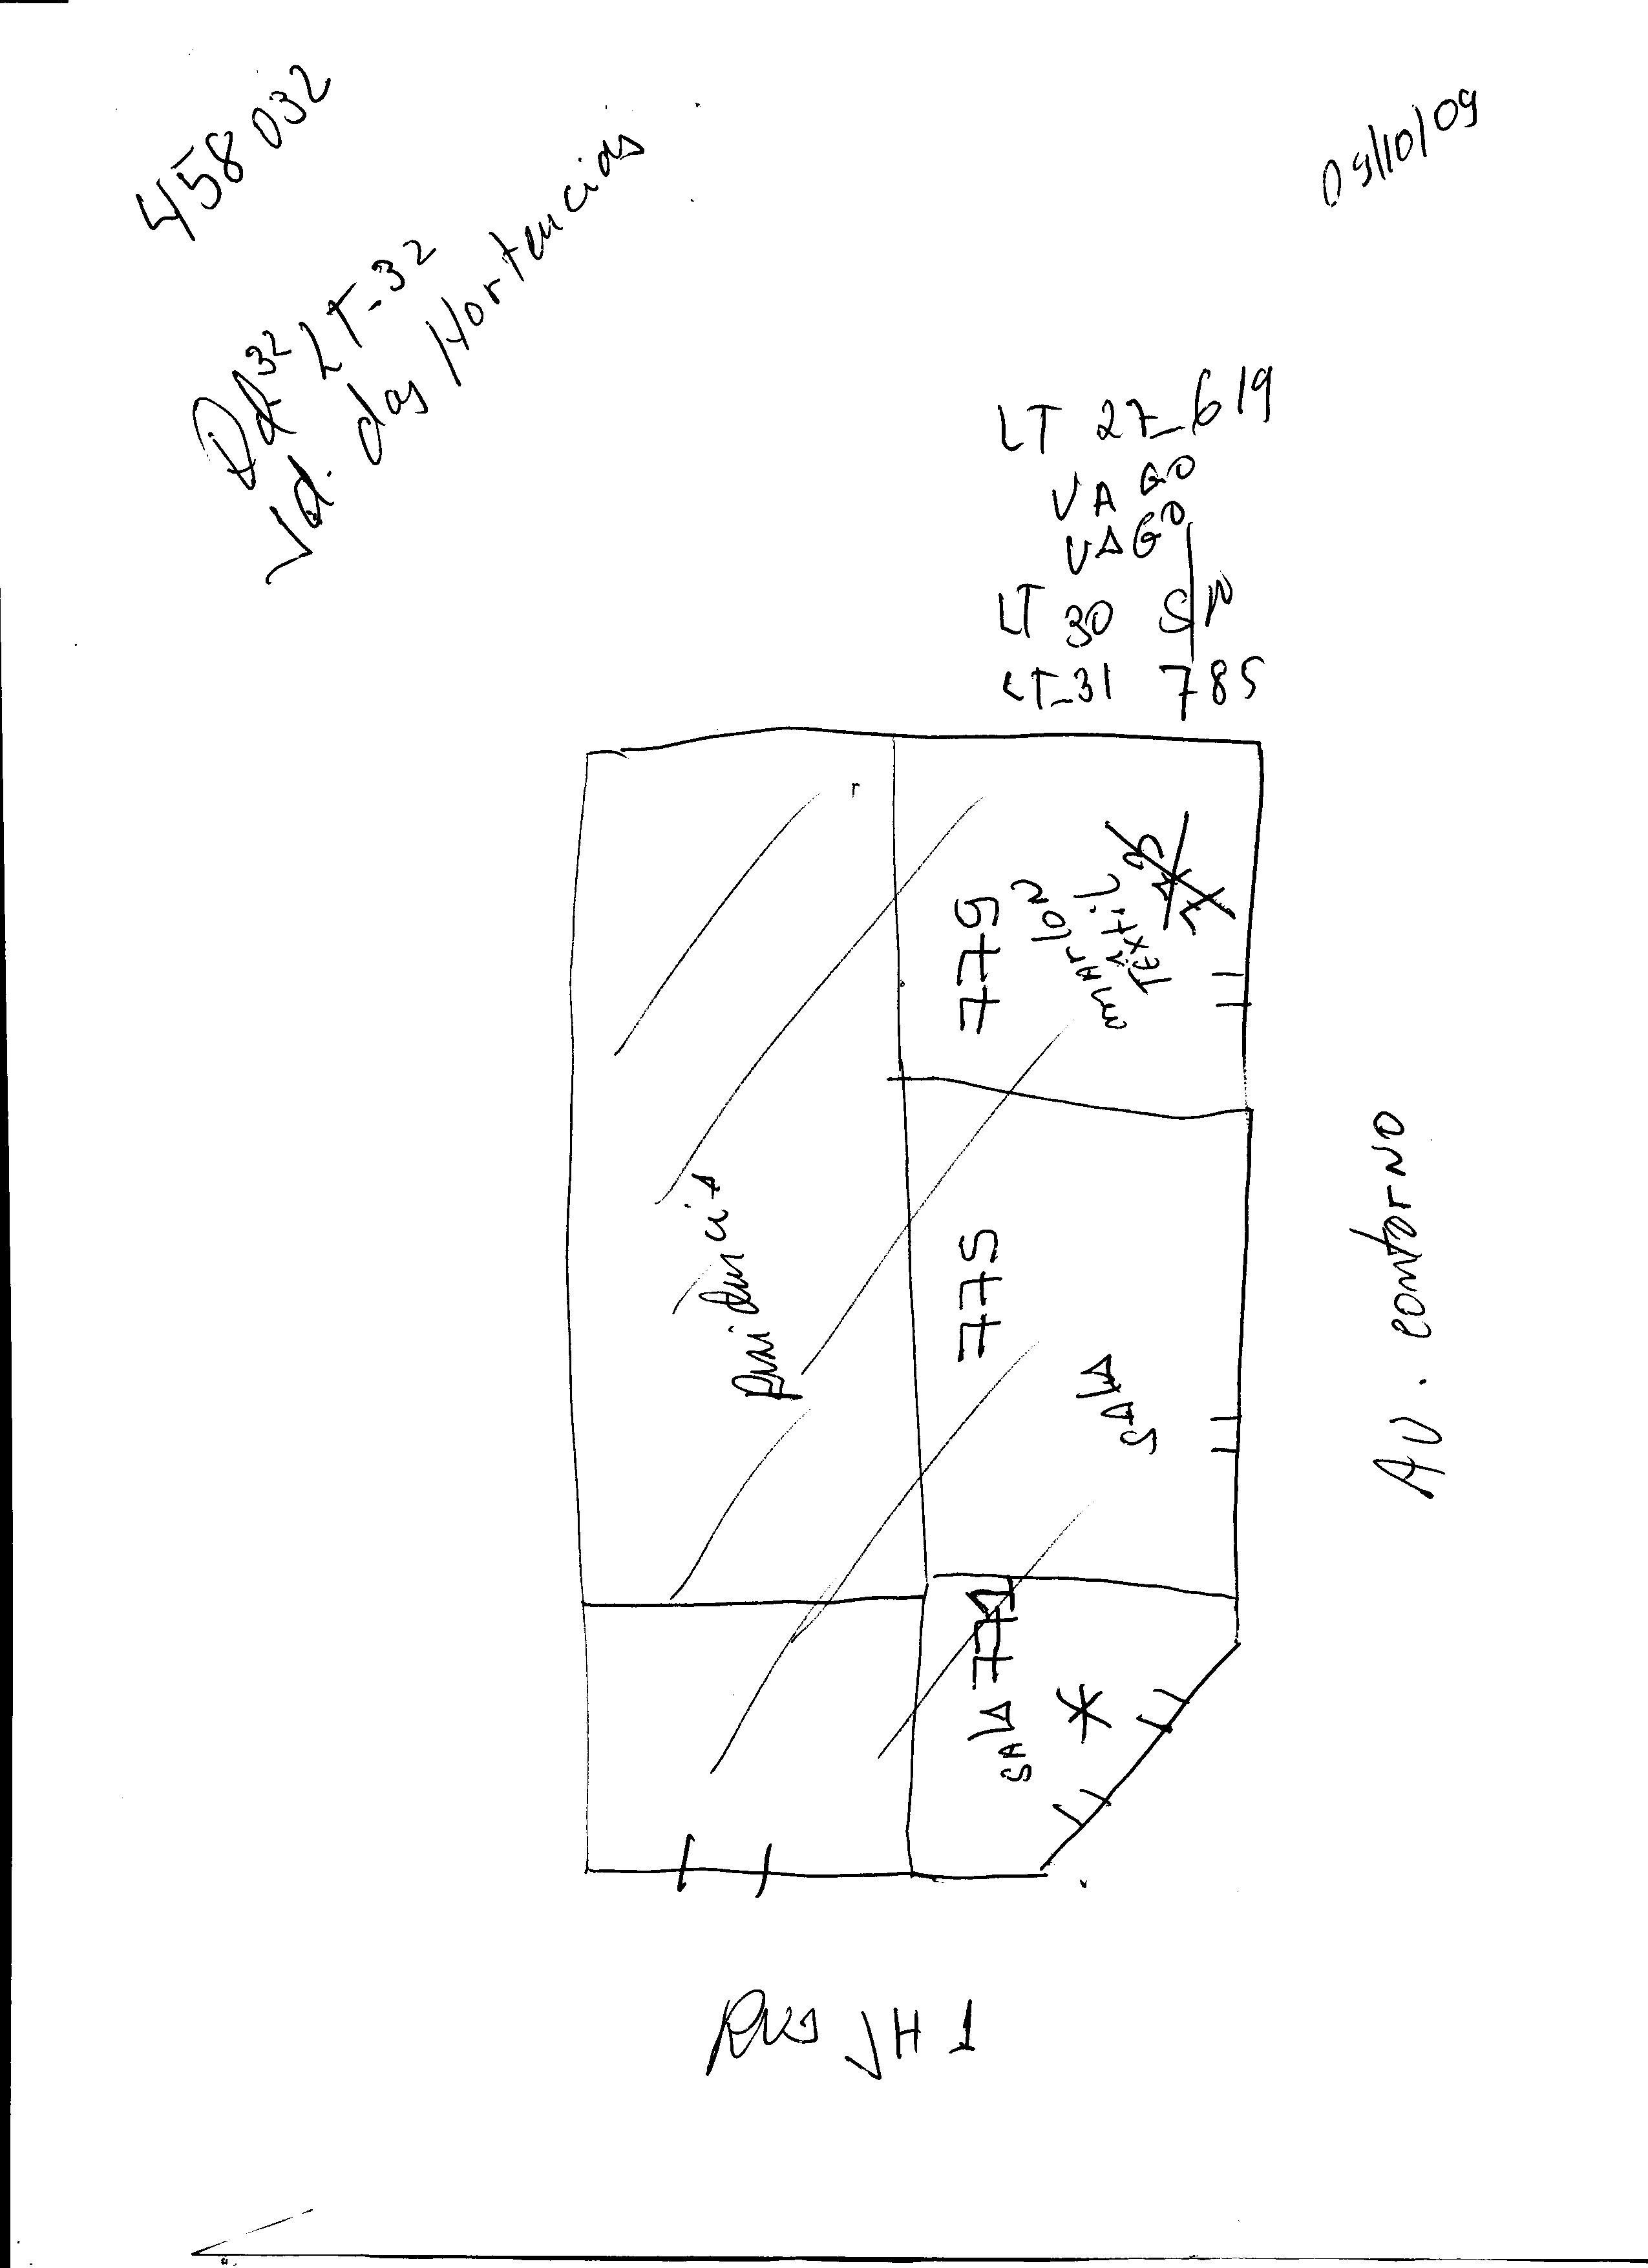 458 032
09/10/09
Qd 32 LT-32
Jd. das Hortencias
LT 27-619
VAGO
VAGO
LT 30 S/N
LT-31 785
779
MARLON
TEXTIL
775
SALA
771
SALA
*
Residencia
AV. contorno
RUA JH 1